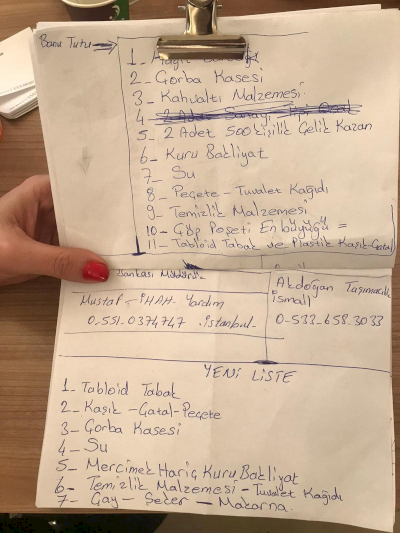 Banu Tutu →
1_ Kağıt Bardağı
2_ Çorba Kasesi
3_ Kahvaltı Malzemesi.
4_ 2 Adet Sanayi Tipi Ocak
5_ 2 Adet 500 kişilik Çelik Kazan
6_ Kuru Bakliyat
7_ Su
8_ Peçete - Tuvalet Kağıdı
9_ Temizlik Malzemesi
10_ Çöp Poşeti En büyüğü =
11_ Tabloid Tabak ve Plastik Kaşık-Çatal
Bankası Müdürü
Mustafa - İHAH Yardım
0-551-0374747 .istanbul-
Akdoğan Taşımacılık
İsmail
0-533-658-3033
YENİ LİSTE
1_ Tabloid Tabak
2_ Kaşık -Çatal-Peçete
3_ Çorba Kasesi
4_ Su
5_ Mercimek Hariç Kuru Bakliyat
6_ Temizlik Malzemesi - Tuvalet Kağıdı
7_ Çay - Şeker - Makarna.